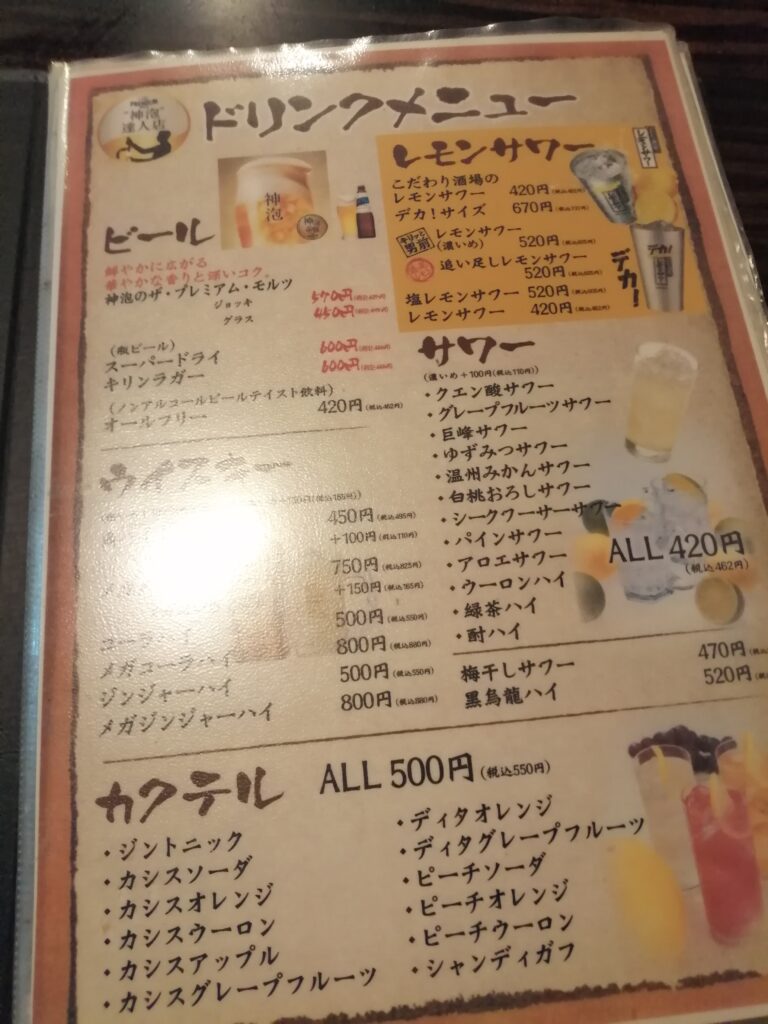 "神泡"
達人店
ドリンクメニュー
神泡
ビール
鮮やかに広がる
華やかな香りと深いコク。
神泡のザ・プレミアム・モルツ
ジョッキ 570円
グラス 450円
(瓶ビール)
スーパードライ 600円
キリンラガー 600円
(ノンアルコールビールテイスト飲料)
オールフリー 420円(税込462円)
レモンサワー
こだわり酒場の
レモンサワー 420円
デカ!サイズ 670円
キリッと
男前
レモンサワー
(濃いめ) 520円
追い足しレモンサワー
520円
塩レモンサワー 520円
レモンサワー 420円
デカ!
サワー
(濃いめ+100円(税込110円))
・クエン酸サワー
・グレープフルーツサワー
・巨峰サワー
・ゆずみつサワー
・温州みかんサワー
・白桃おろしサワー
・シークワーサーサワー
・パインサワー
・アロエサワー
・ウーロンハイ
・緑茶ハイ
・酎ハイ
ALL 420円
(税込462円)
梅干しサワー 470円
黒烏龍ハイ 520円
ウイスキー
450円(税込495円)
+100円(税込110円)
750円(税込825円)
+150円(税込165円)
コーラハイ 500円(税込550円)
メガコーラハイ 800円(税込880円)
ジンジャーハイ 500円(税込550円)
メガジンジャーハイ 800円(税込880円)
カクテル ALL 500円(税込550円)
・ジントニック
・カシスソーダ
・カシスオレンジ
・カシスウーロン
・カシスアップル
・カシスグレープフルーツ
・ディタオレンジ
・ディタグレープフルーツ
・ピーチソーダ
・ピーチオレンジ
・ピーチウーロン
・シャンディガフ